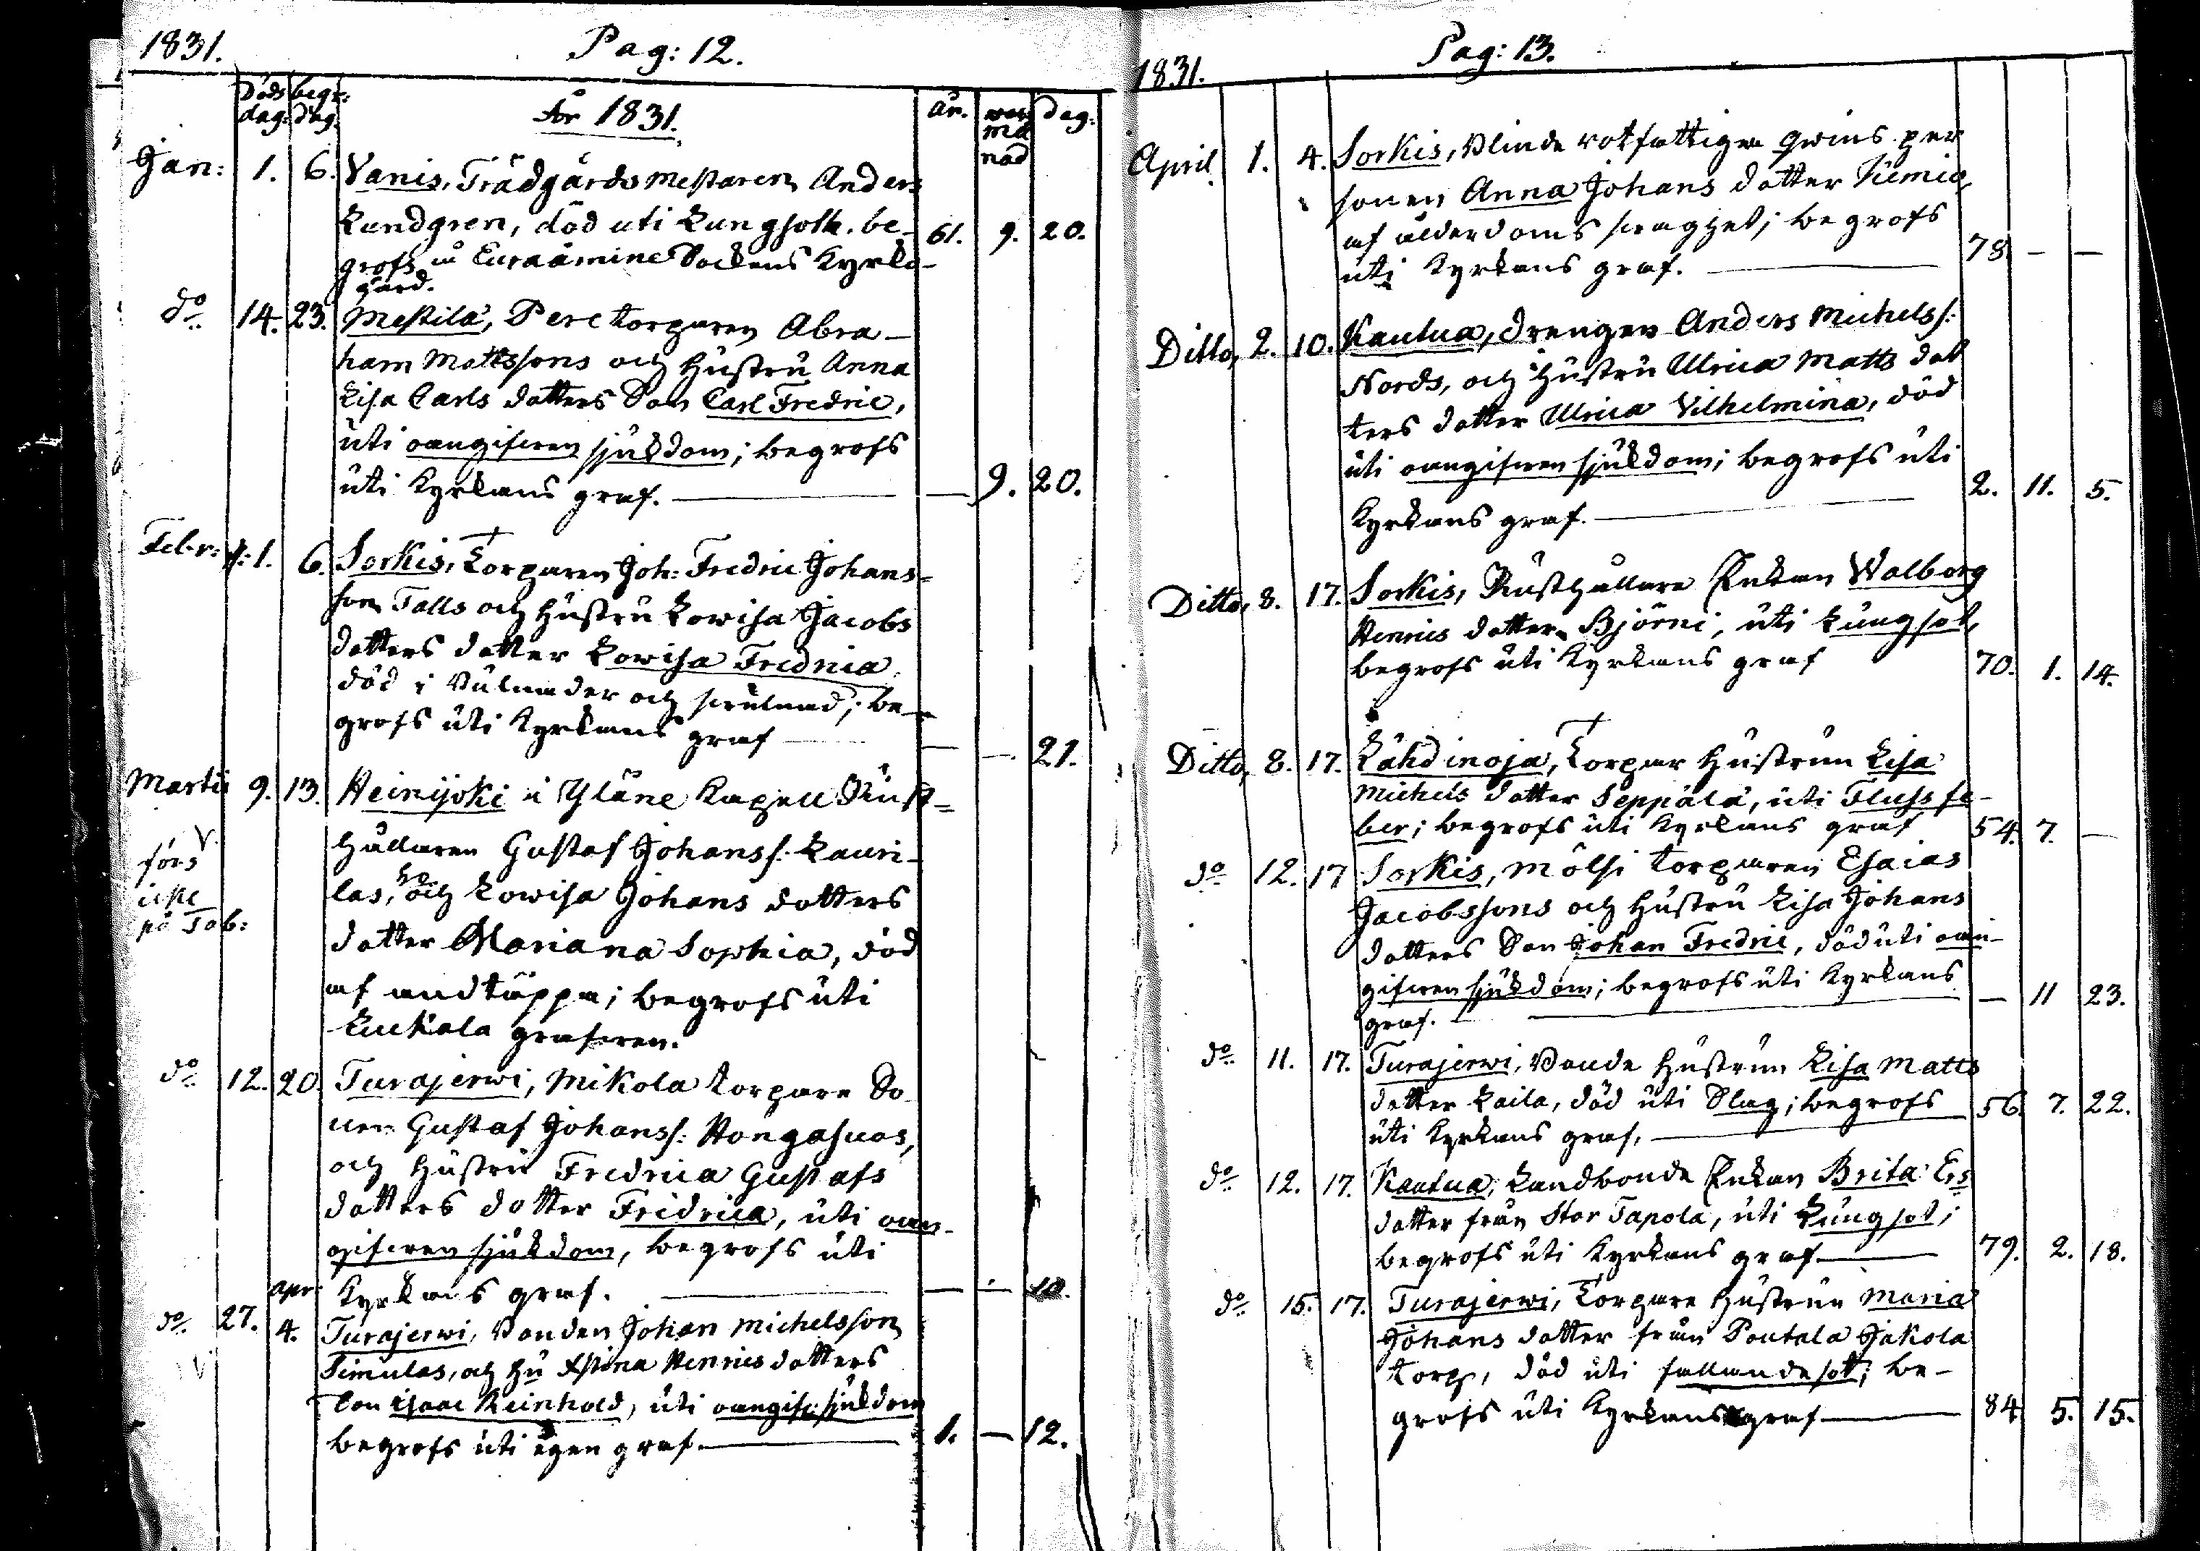 1831. Pag: 12.
Döds dag: begr: dag. År 1831. år. må nad dag:
Jan: 1. 6. Vanis, Trädgårds mestaren Anders
Lundgren, död uti Lungsoth. be- 61. 9. 20.
grofs i Euraåminne Sockens Kyrko-
gård.
do 14. 23. Mestilä, Pere torparen Abra-
ham Mattssons och Hustru Anna
Lisa Carls dotters Son Carl Fredric,
uti oangifven sjukdom; begrofs
uti Kyrkans graf. — — 9. 20.
Febr: 1. 6. Sorkis, Torparen Joh: Fredric Johans-
son Talls och Hustru Lowisa Jacobs
dotters dotter Lowisa Fredrica
död i och ; be-
grofs uti Kyrkans graf — — — 21.
Martii 9. 13. Heinijoki i Yläne Kapell Rust-
hållaren Gustaf Johanss: Lauri-
förs
icke
på Tab:
las, och Lowisa Johans dotters
dotter Mariana Sophia, död
af andtäppa; begrofs uti
Luukala grafven.
do 12. 20. Turajerwi, Mikola torpare So
nen Gustaf Johanss: Hongasuos,
och Hustru Fredrica Gustafs
dotters dotter Fridrica, uti oan-
gifven sjukdom, begrofs uti
Kyrkans graf. — — — 10.
do 27. apr: 4. Turajerwi, Bonden Johan Michelsson
Simulas, och Hu Stina Henrics dotters
Son Isaac Reinhold, uti oangif: sjukdom
begrofs uti egen graf — 1. — 12.
1831. Pag: 13.
April 1. 4. Sorkis, Blinda rotfattiga qwins per
sonen Anna Johans dotter
af ålderdoms svaghet; begrofs
uti Kyrkans graf. — 78. — —
Ditto, 2. 10. Kautua, drengen Anders Michelss:
Nords, och Hustru Ulrica Matts dot
ters dotter Ulrica Vilhelmina, död
uti oangifven sjukdom; begrofs uti
Kyrkans graf. — 2. 11. 5.
Ditto, 8. 17. Sorkis, Rusthållare Enkan Walborg
Henrics dotter Björni, uti Lungsot,
begrofs uti Kyrkans graf 70. 1. 14.
Ditto, 8. 17. Lähdinoja, Torpar Hustrun Lisa
Michels dotter Seppälä, uti Flussfe-
ber; begrofs uti Kyrkans graf 54. 7. —
do 12. 17 Sorkis, Mölsi torparen Esaias
Jacobssons och Hustru Lisa Johans
dotters Son Johan Fredric, död uti oan-
gifven sjukdom; begrofs uti Kyrkans
graf. — — 11 23.
do 11. 17. Turajerwi, Bonde Hustrun Lisa Matts
dotter Laila, död uti Slag; begrofs 56. 7. 22.
uti Kyrkans graf. —
do 12. 17. Kautua, Landbonde Enkan Brita Ers
dotter från Stor Tapola, uti Lungsot;
begrofs uti Kyrkans graf — 79. 2. 18.
do 15. 17. Turajerwi, Torpare Hustrun Maria
Johans dotter från Poutala Jakola
torp, död uti fallandesot; be-
grofs uti Kyrkans graf — 84 5. 15.